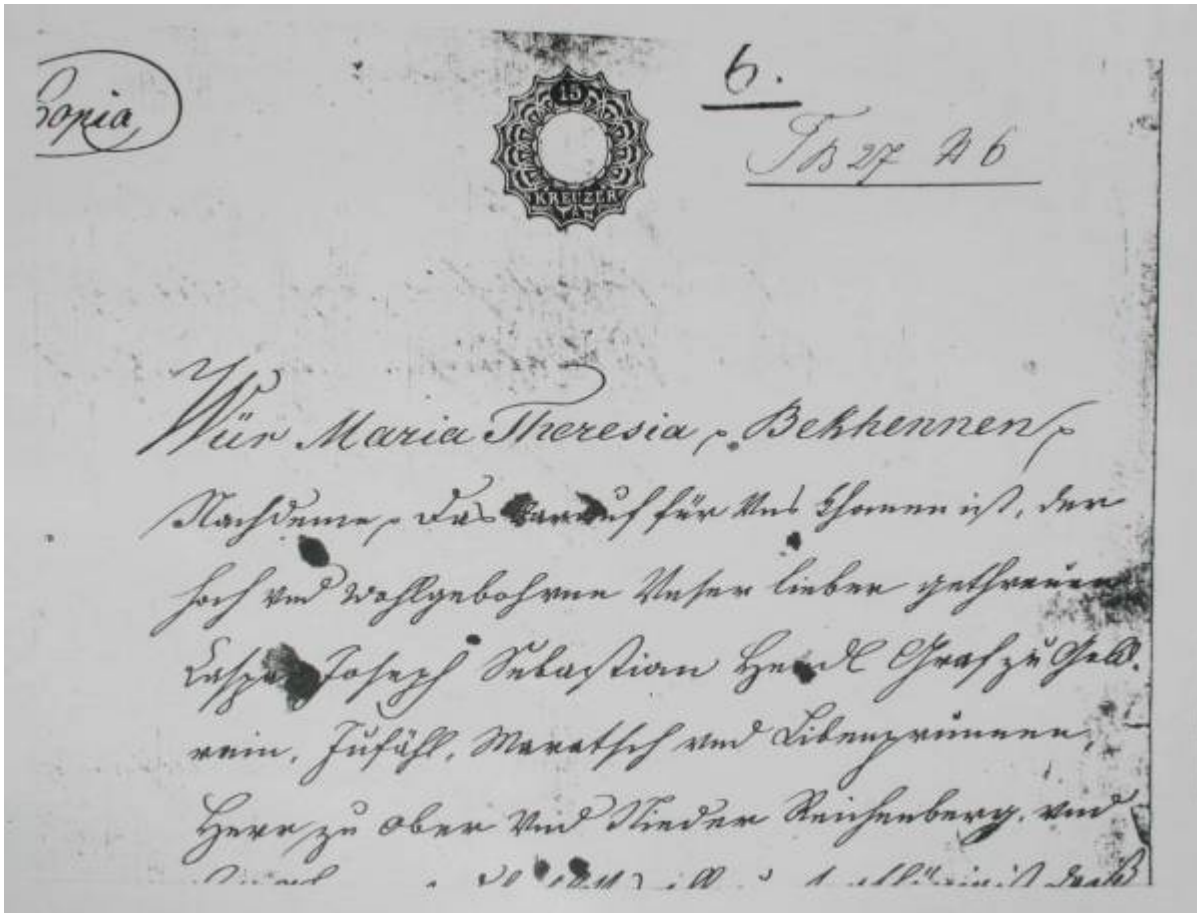 Copia
15
KREUZER
6.
TB 27 N 6
Wür Maria Theresia Bekhennen
Nachdeme, das darauf für Uns khomen ist, der
hoch und wohlgebohrne Unser lieber gethreuer
Caspar Joseph Sebastian Hendl Graf zu Gold-
rain, Jufähl, Maretsch und Libenprunnen,
Herr zu Ober und Nieder Reichenberg, und